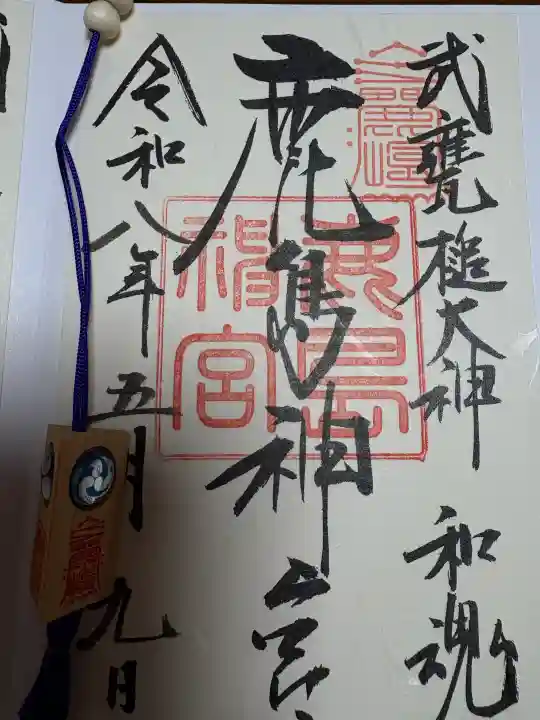 武甕槌大神 和魂
鹿島神宮
令和八年五月九日
鹿島神宮